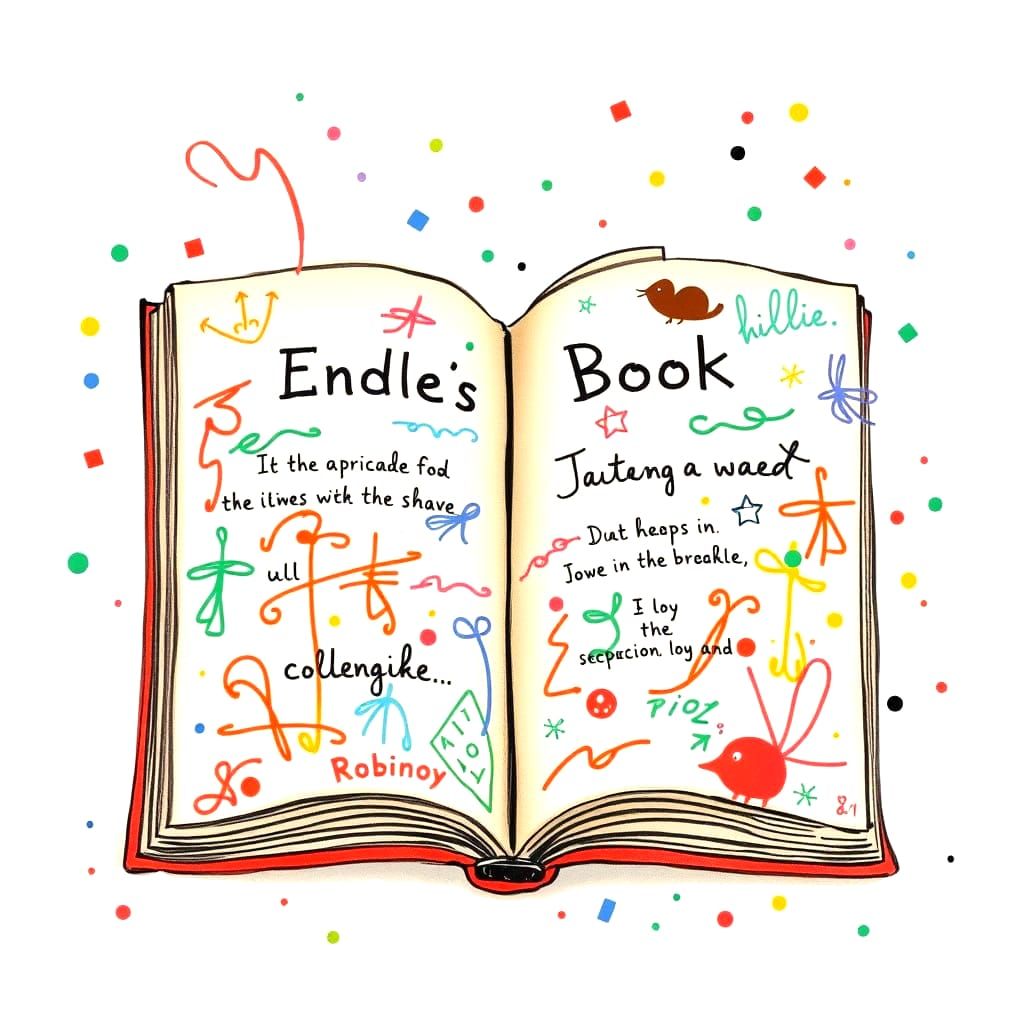 Endle's
It the apricade fod
the ilwes with the shave
ull
collengike...
Robinoy
hillie.
Book
Jauteng a waed
Dut heops in.
Jowe in the breakle,
I loy
the
loy and
PiOZ